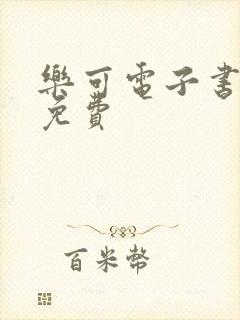 樂可電子書
免費
百米幣